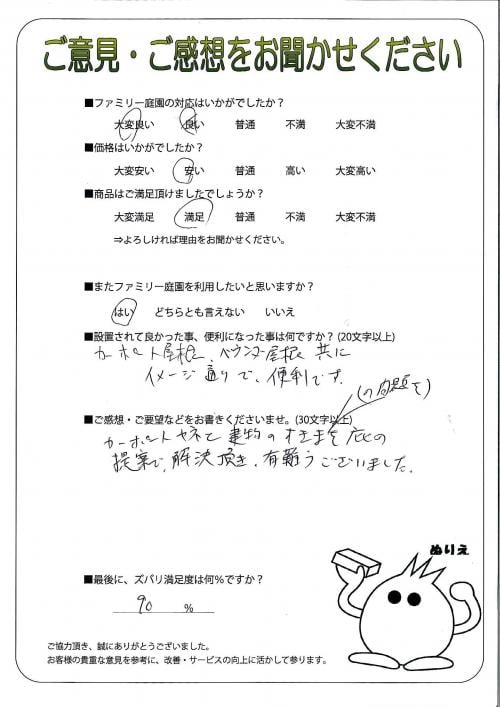 ご意見・ご感想をお聞かせください
■ファミリー庭園の対応はいかがでしたか？
大変良い 良い 普通 不満 大変不満
■価格はいかがでしたか？
大変安い 安い 普通 高い 大変高い
■商品はご満足頂けましたでしょうか？
大変満足 満足 普通 不満 大変不満
⇒よろしければ理由をお聞かせください。
■またファミリー庭園を利用したいと思いますか？
はい どちらとも言えない いいえ
■設置されて良かった事、便利になった事は何ですか？(20文字以上)
カーポート屋根、ベランダー屋根 共に
イメージ通りで、便利です.
■ご感想・ご要望などをお書きくださいませ。(30文字以上)
(の問題を)
カーポートヤネと建物のすきまを庇の
提案で、解決頂き、有難うございました.
■最後に、ズバリ満足度は何%ですか？
90 %
ぬりえ
ご協力頂き、誠にありがとうございました。
お客様の貴重な意見を参考に、改善・サービスの向上に活かして参ります。